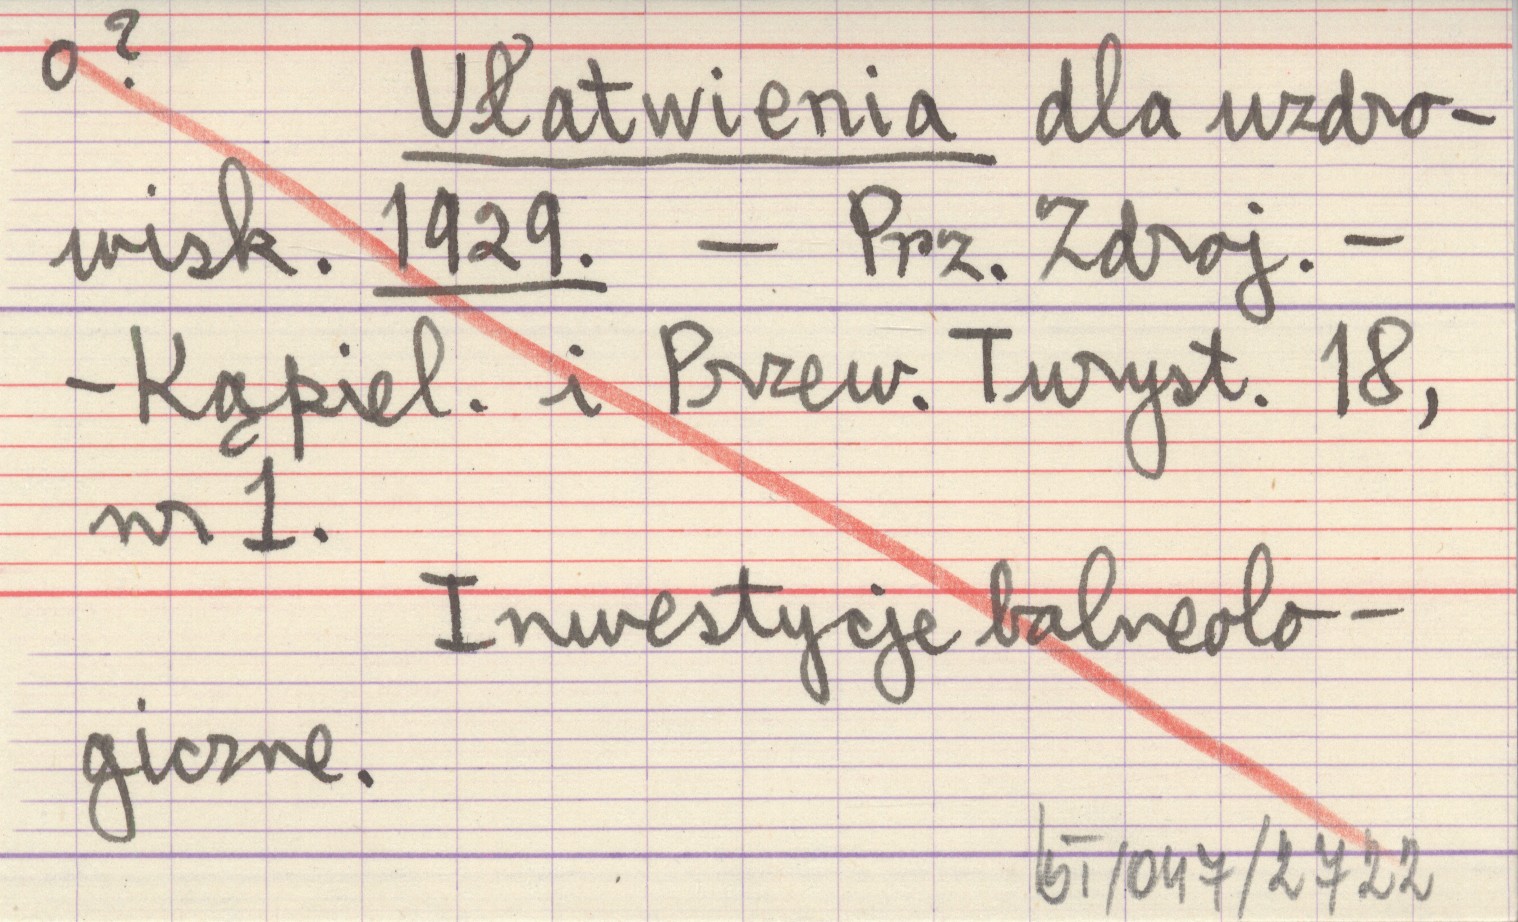 o ?
Ułatwienia dla uzdro-
wisk. 1929. — Prz. Zdroj. -
- Kąpiel. i Przew. Turyst. 18,
nr 1.
Inwestycje balneolo-
giczne.
BI/047/2722